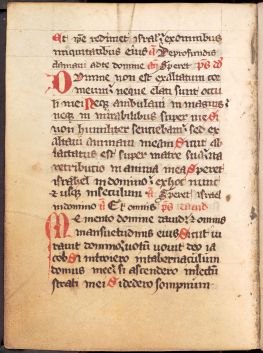 Et ipse redimet israhel ex omnibus
iniquitatibus eius a De profundis
clamaui ad te domine an Speret ps dd
Domine non est exaltatum cor
meum neque elati sunt occu
li mei Neque ambulaui in magnis
neque in mirabilibus super me Si
non humiliter sentiebam sed ex
altaui animam meam Sicut ab
lactatus est super matre sua ita
retributio in anima mea Speret
israhel in domino ex hoc nunc
et usque in seculum Speret israel
in domino Et omnis ps dauid
Memento domine dauid et omnis
mansuetudinis eius Sicut iu
rauit domino uotum uouit deo ia
cob Si introiero in tabernaculum
domus mee si ascendero in lectum
strati mei Si dedero sompnum